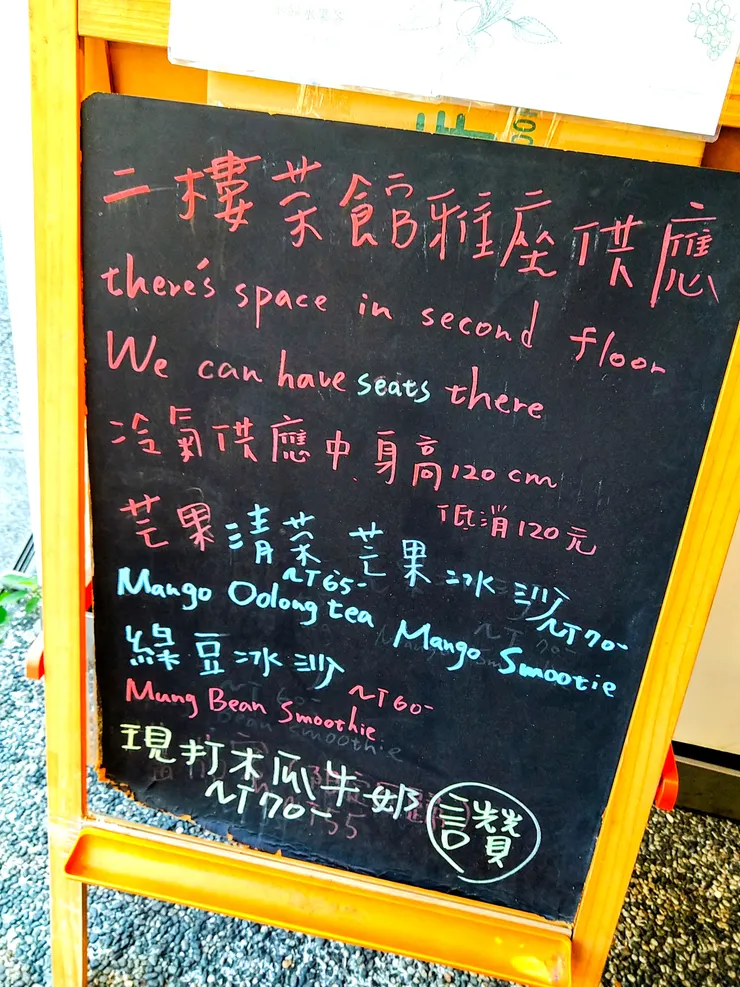 二樓茶館雅座供應
there's space in second floor
We can have seats there
冷氣供應中 身高120cm
低消120元
芒果清茶 芒果冰沙
NT65- NT70-
Mango Oolong tea Mango Smootie
綠豆冰沙
NT60-
Mung Bean Smoothie
現打木瓜牛奶 讚
NT70-